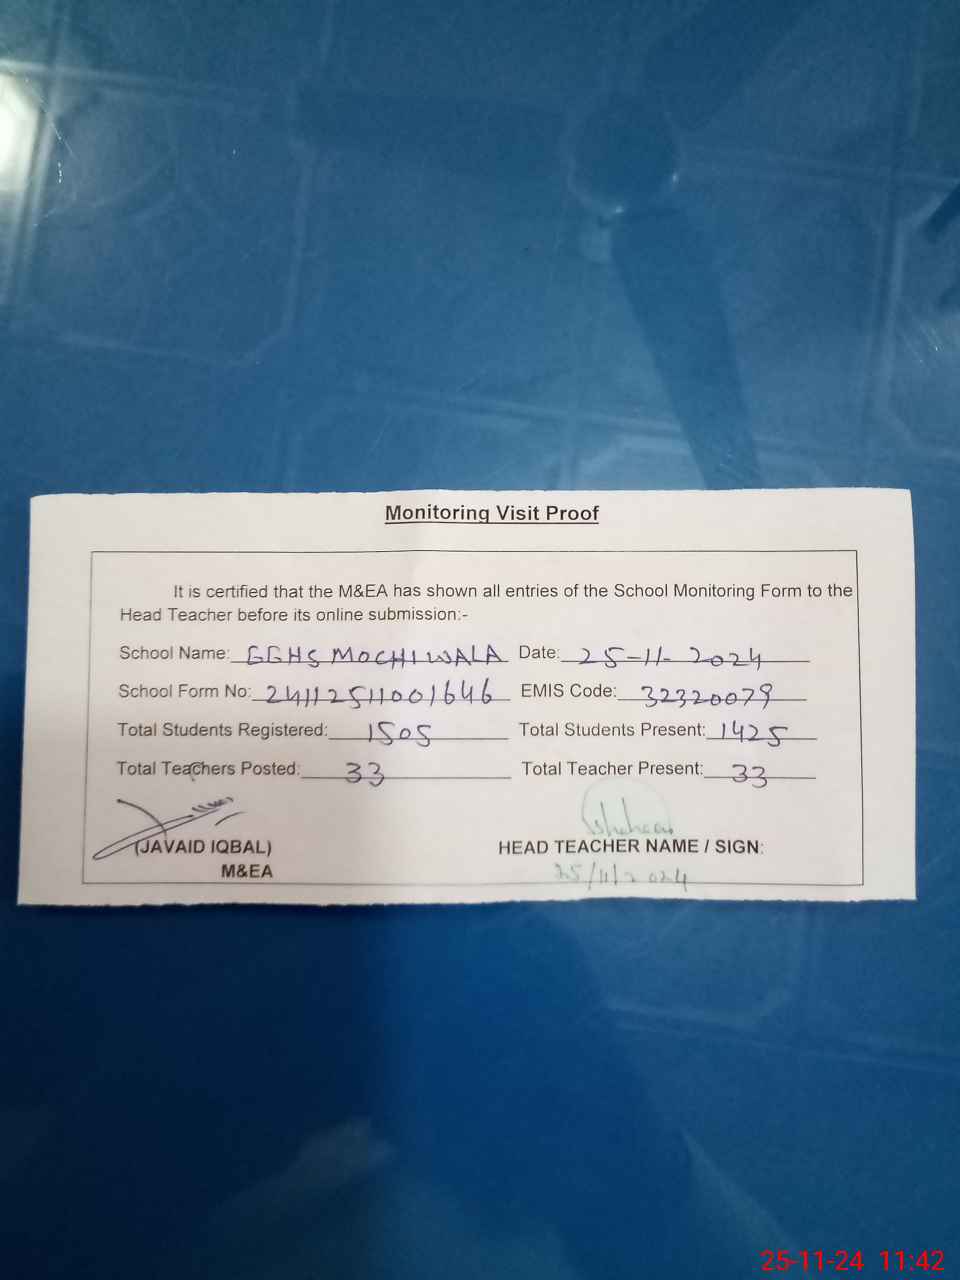 Monitoring Visit Proof
It is certified that the M&EA has shown all entries of the School Monitoring Form to the
Head Teacher before its online submission:-
School Name: GGHS MOCHIWALA Date: 25-11-2024
School Form No: 24112511001646 EMIS Code: 32320079
Total Students Registered: 1505 Total Students Present: 1425
Total Teachers Posted: 33 Total Teacher Present: 33
(JAVAID IQBAL) HEAD TEACHER NAME / SIGN:
M&EA 25/11/2024
25-11-24 11:42